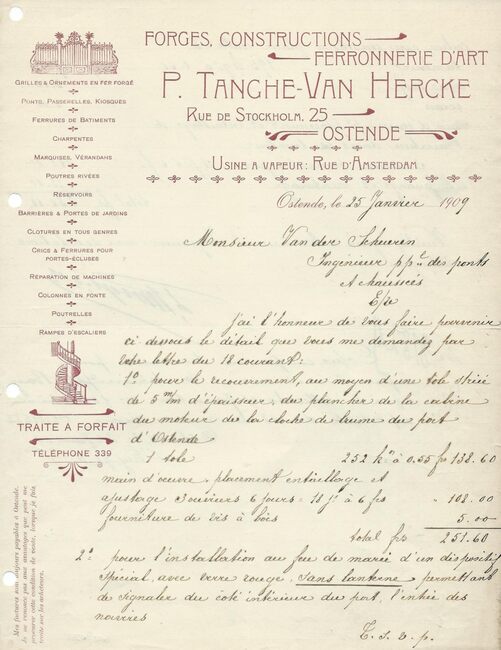 FORGES, CONSTRUCTIONS
FERRONNERIE D'ART
P. TANGHE-VAN HERCKE
RUE DE STOCKHOLM, 25
OSTENDE
USINE A VAPEUR: RUE D'AMSTERDAM
GRILLES & ORNEMENTS EN FER FORGÉ
PONTS, PASSERELLES, KIOSQUES
FERRURES DE BATIMENTS
CHARPENTES
MARQUISES, VÉRANDAHS
POUTRES RIVÉES
RÉSERVOIRS
BARRIÈRES & PORTES DE JARDINS
CLOTURES EN TOUS GENRES
CRICS & FERRURES POUR
PORTES-ÉCLUSES
RÉPARATION DE MACHINES
COLONNES EN FONTE
POUTRELLES
RAMPES D'ESCALIERS
TRAITE A FORFAIT
TÉLÉPHONE 339
Mes factures sont toujours payables à Ostende.
Je ne renonce pas aux avantages que peut me
procurer cette condition de vente, lorsque je fais
traite sur les acheteurs.
Ostende, le 25 Janvier 1909
Monsieur Van der Schueren
Ingénieur pp^al des ponts
et chaussées
E/v
j'ai l'honneur de vous faire parvenir
ci dessous le détail que vous me demandez par
votre lettre du 18 courant:
1° pour le recouvrement, au moyen d'une tole striée
de 5 m/m d'épaisseur, du plancher de la cabine
du moteur de la cloche de brume du port
d'Ostende
1 tole 252 k^os à 0.55 fr 138.60
main d'œuvre, placement entaillage et
ajustage 3 ouvriers 6 jours = 18 j^s à 6 frs " 108.00
fourniture de vis à bois 5.00
total frs 251.60
2° pour l'installation au feu de marée d'un dispositif
spécial, avec verre rouge, sans lanterne permettant
de signaler du coté intérieur du port, l'entée des
navires
T. S. V. p.